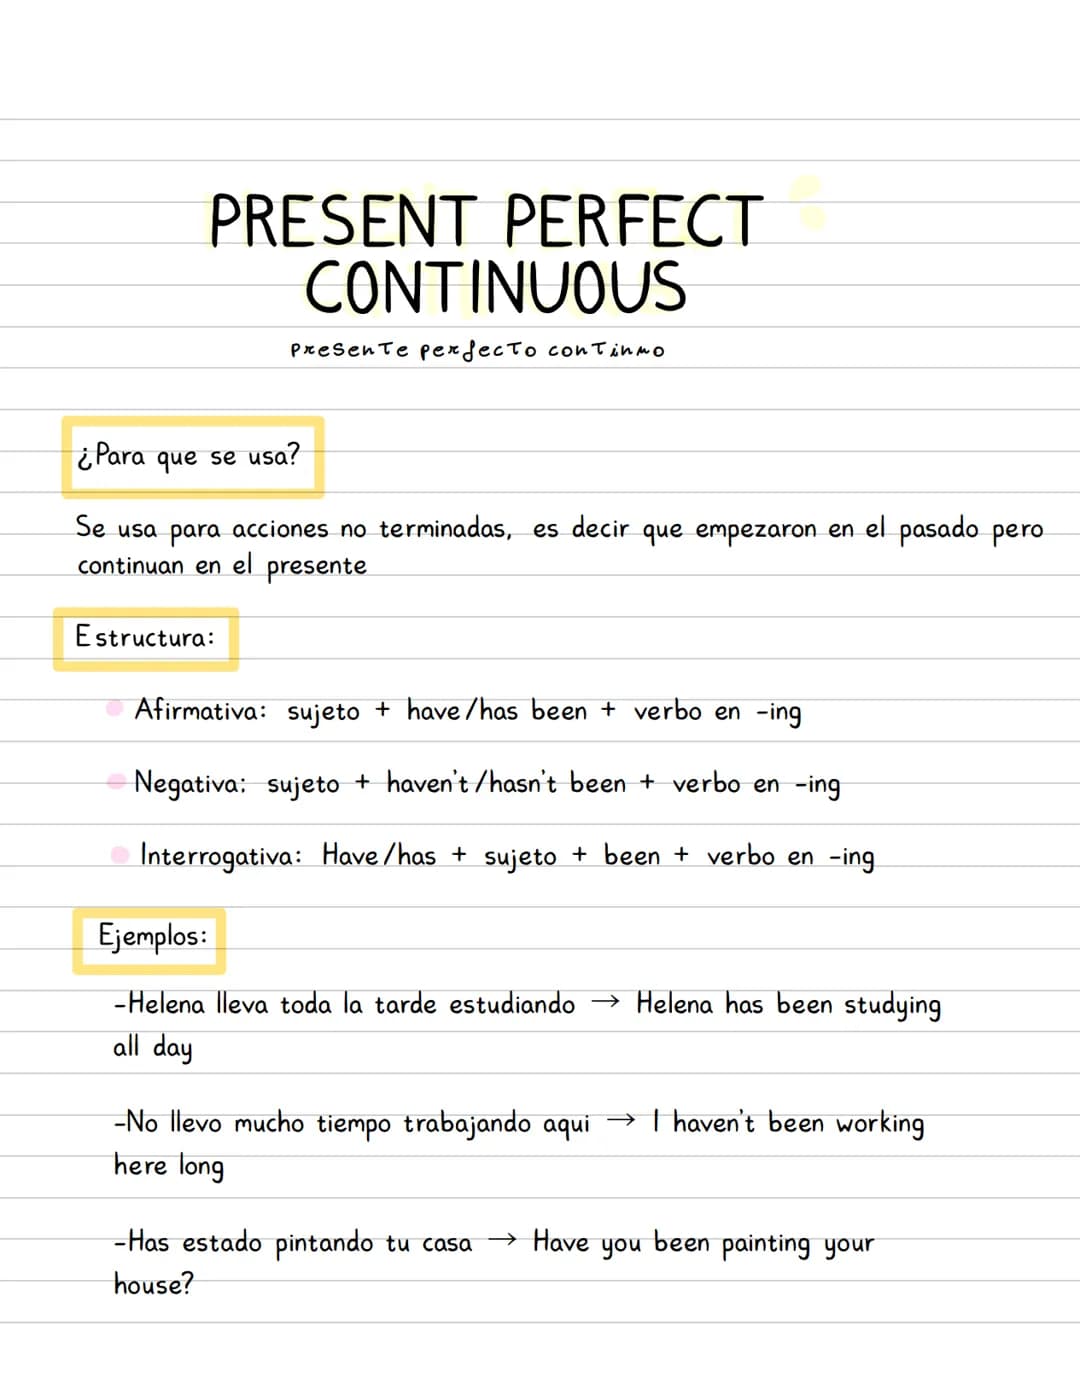 PRESENT PERFECT
CONTINUOUS
Presente perfecto continuo
¿Para que se usa?
Se usa para acciones no terminadas, es decir que empezaron en el pasado pero
continuan en el presente
Estructura:
Afirmativa: sujeto + have/has been + verbo en -ing
Negativa: sujeto + haven't/hasn't been + verbo en -ing
Interrogativa: Have/has + sujeto + been + verbo en -ing
Ejemplos:
-Helena lleva toda la tarde estudiando → Helena has been studying
all day
-No llevo mucho tiempo trabajando aqui → I haven't been working
here long
-Has estado pintando tu casa → Have you been painting your
house?